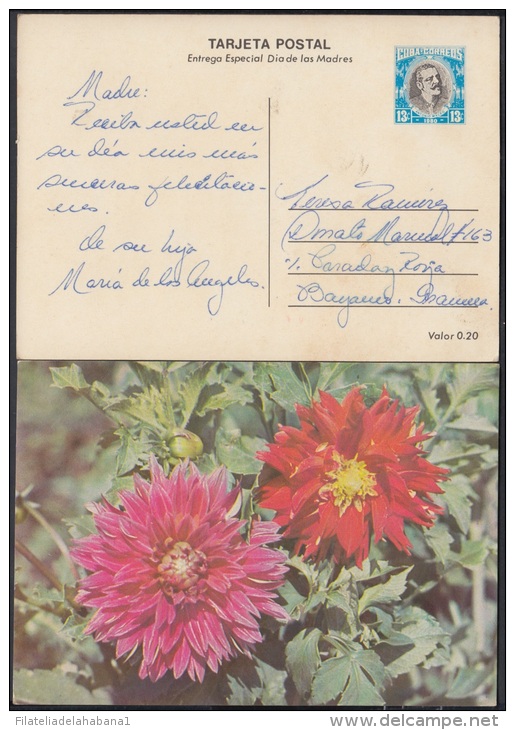 TARJETA POSTAL
Entrega Especial Dia de las Madres
CUBA CORREOS
13c 1980 13c
Madre:
Reciba usted en
su día mis más
sinceras felicitacio-
nes.
de su hija
María de los Angeles.
Teresa Ramírez
Donato Marmol #163
Bayamo.
Valor 0.20
Filateliadelahabana1